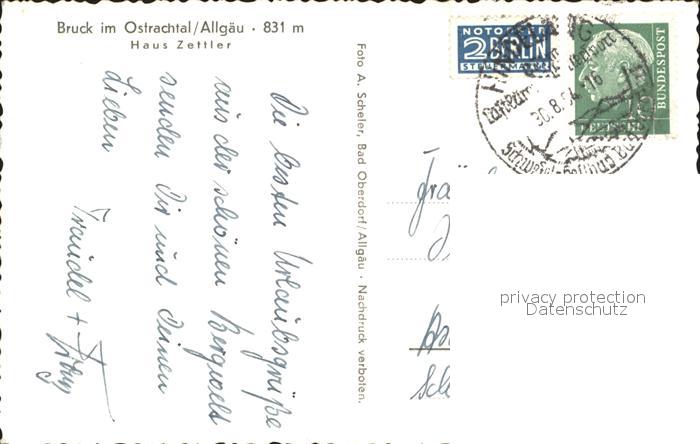 Bruck im Ostrachtal/Allgäu · 831 m
Haus Zettler
Die besten Urlaubsgrüße
aus der schönen Bergwelt
senden Dir und Deinen
Lieben
Traudel +
Foto A. Scheler, Bad Oberdorf/Allgäu · Nachdruck verboten.
NOTOPFER
2 BERLIN
STEUERMARKE
30.8.54
DEUTSCHE
BUNDESPOST
10
privacy protection
Datenschutz